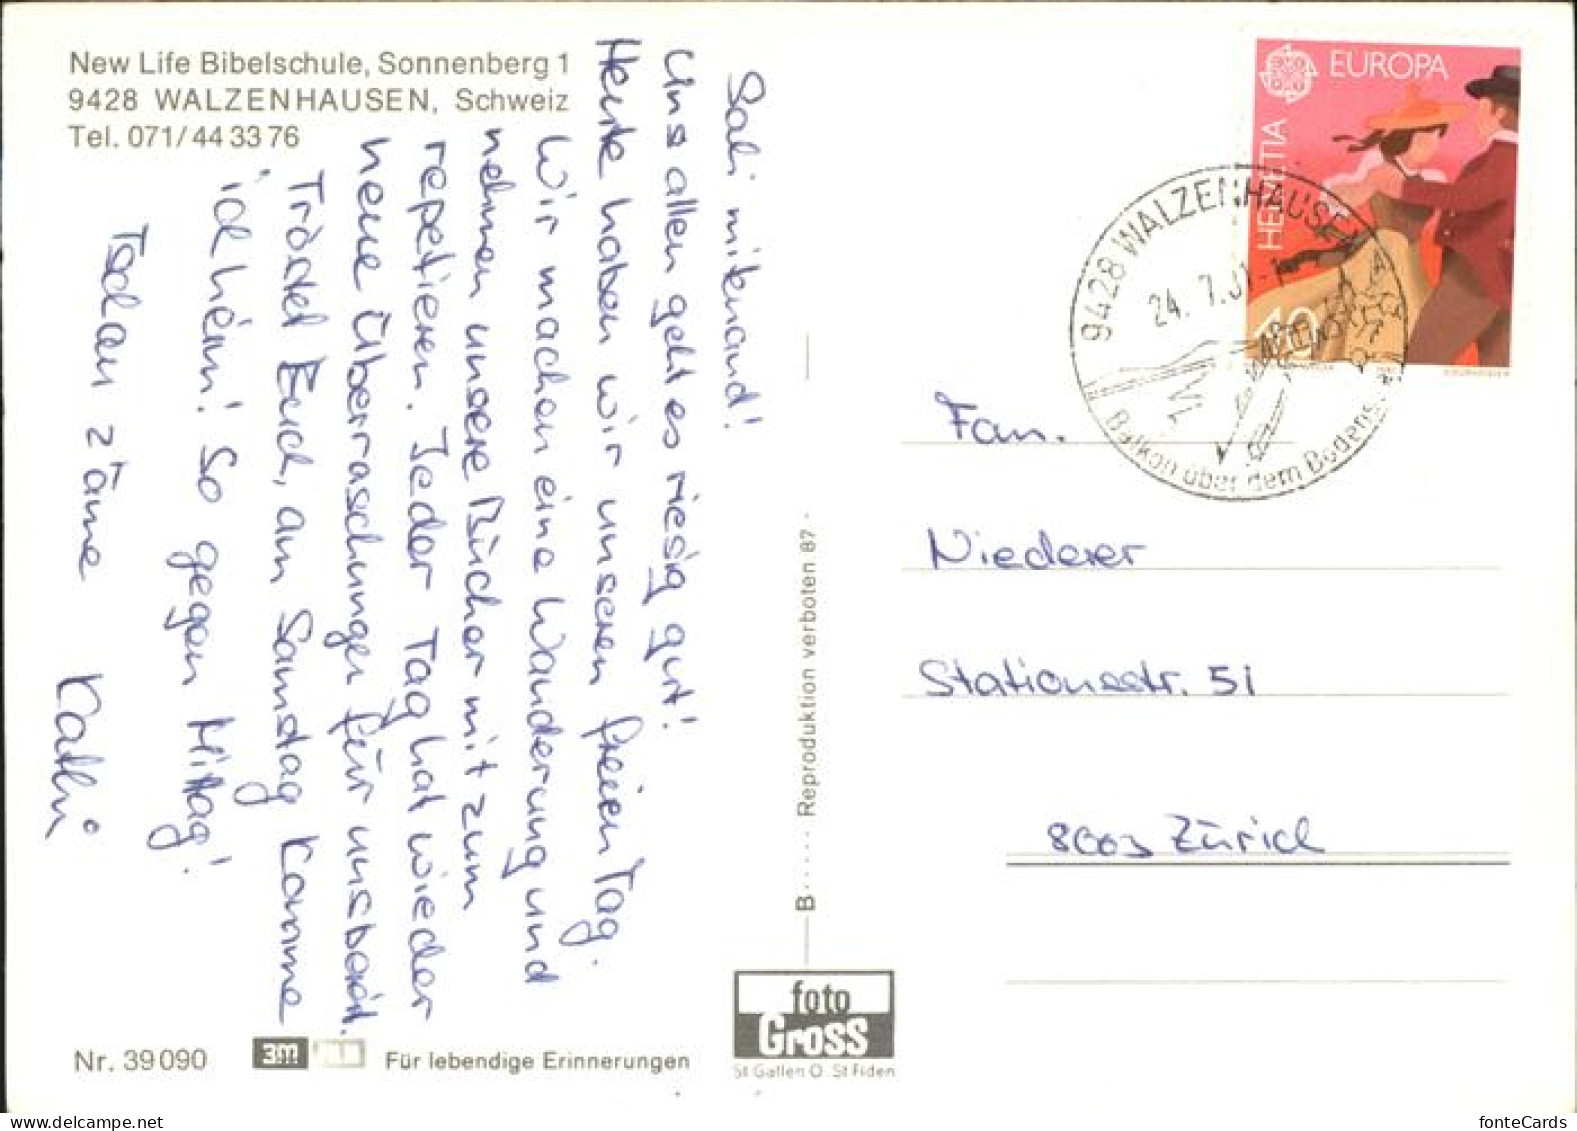 New Life Bibelschule, Sonnenberg 1
9428 WALZENHAUSEN, Schweiz
Tel. 071/44 33 76
Sali mitenand!
Uns allen geht es riesig gut!
Heute haben wir unseren freien Tag.
Wir machen eine Wanderung und
nehmen unsere Bücher mit zum
repetieren. Jeder Tag hat wieder
neue Überraschungen für uns bereit.
Tröstet Euch, am Samstag komme
ich heim! So gegen Mittag!
Tschau zäme Kathi
Nr. 39 090
3m
Für lebendige Erinnerungen
B····· Reproduktion verboten 87 -
foto
Gross
St Gallen O St Fiden
EUROPA
HELVETIA
40
9428 WALZENHAUSEN
24. 7.81-1
Balkon über dem Bodensee
Fam.
Niederer
Stationsstr. 51
8003 Zürich
fonteCards